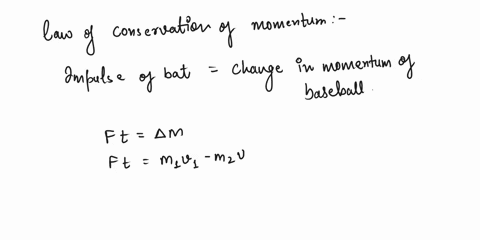 Law of conservation of momentum:-
Impulse of bat = change in momentum of
baseball.
Ft = ΔM
Ft = m₁v₁ - m₂v